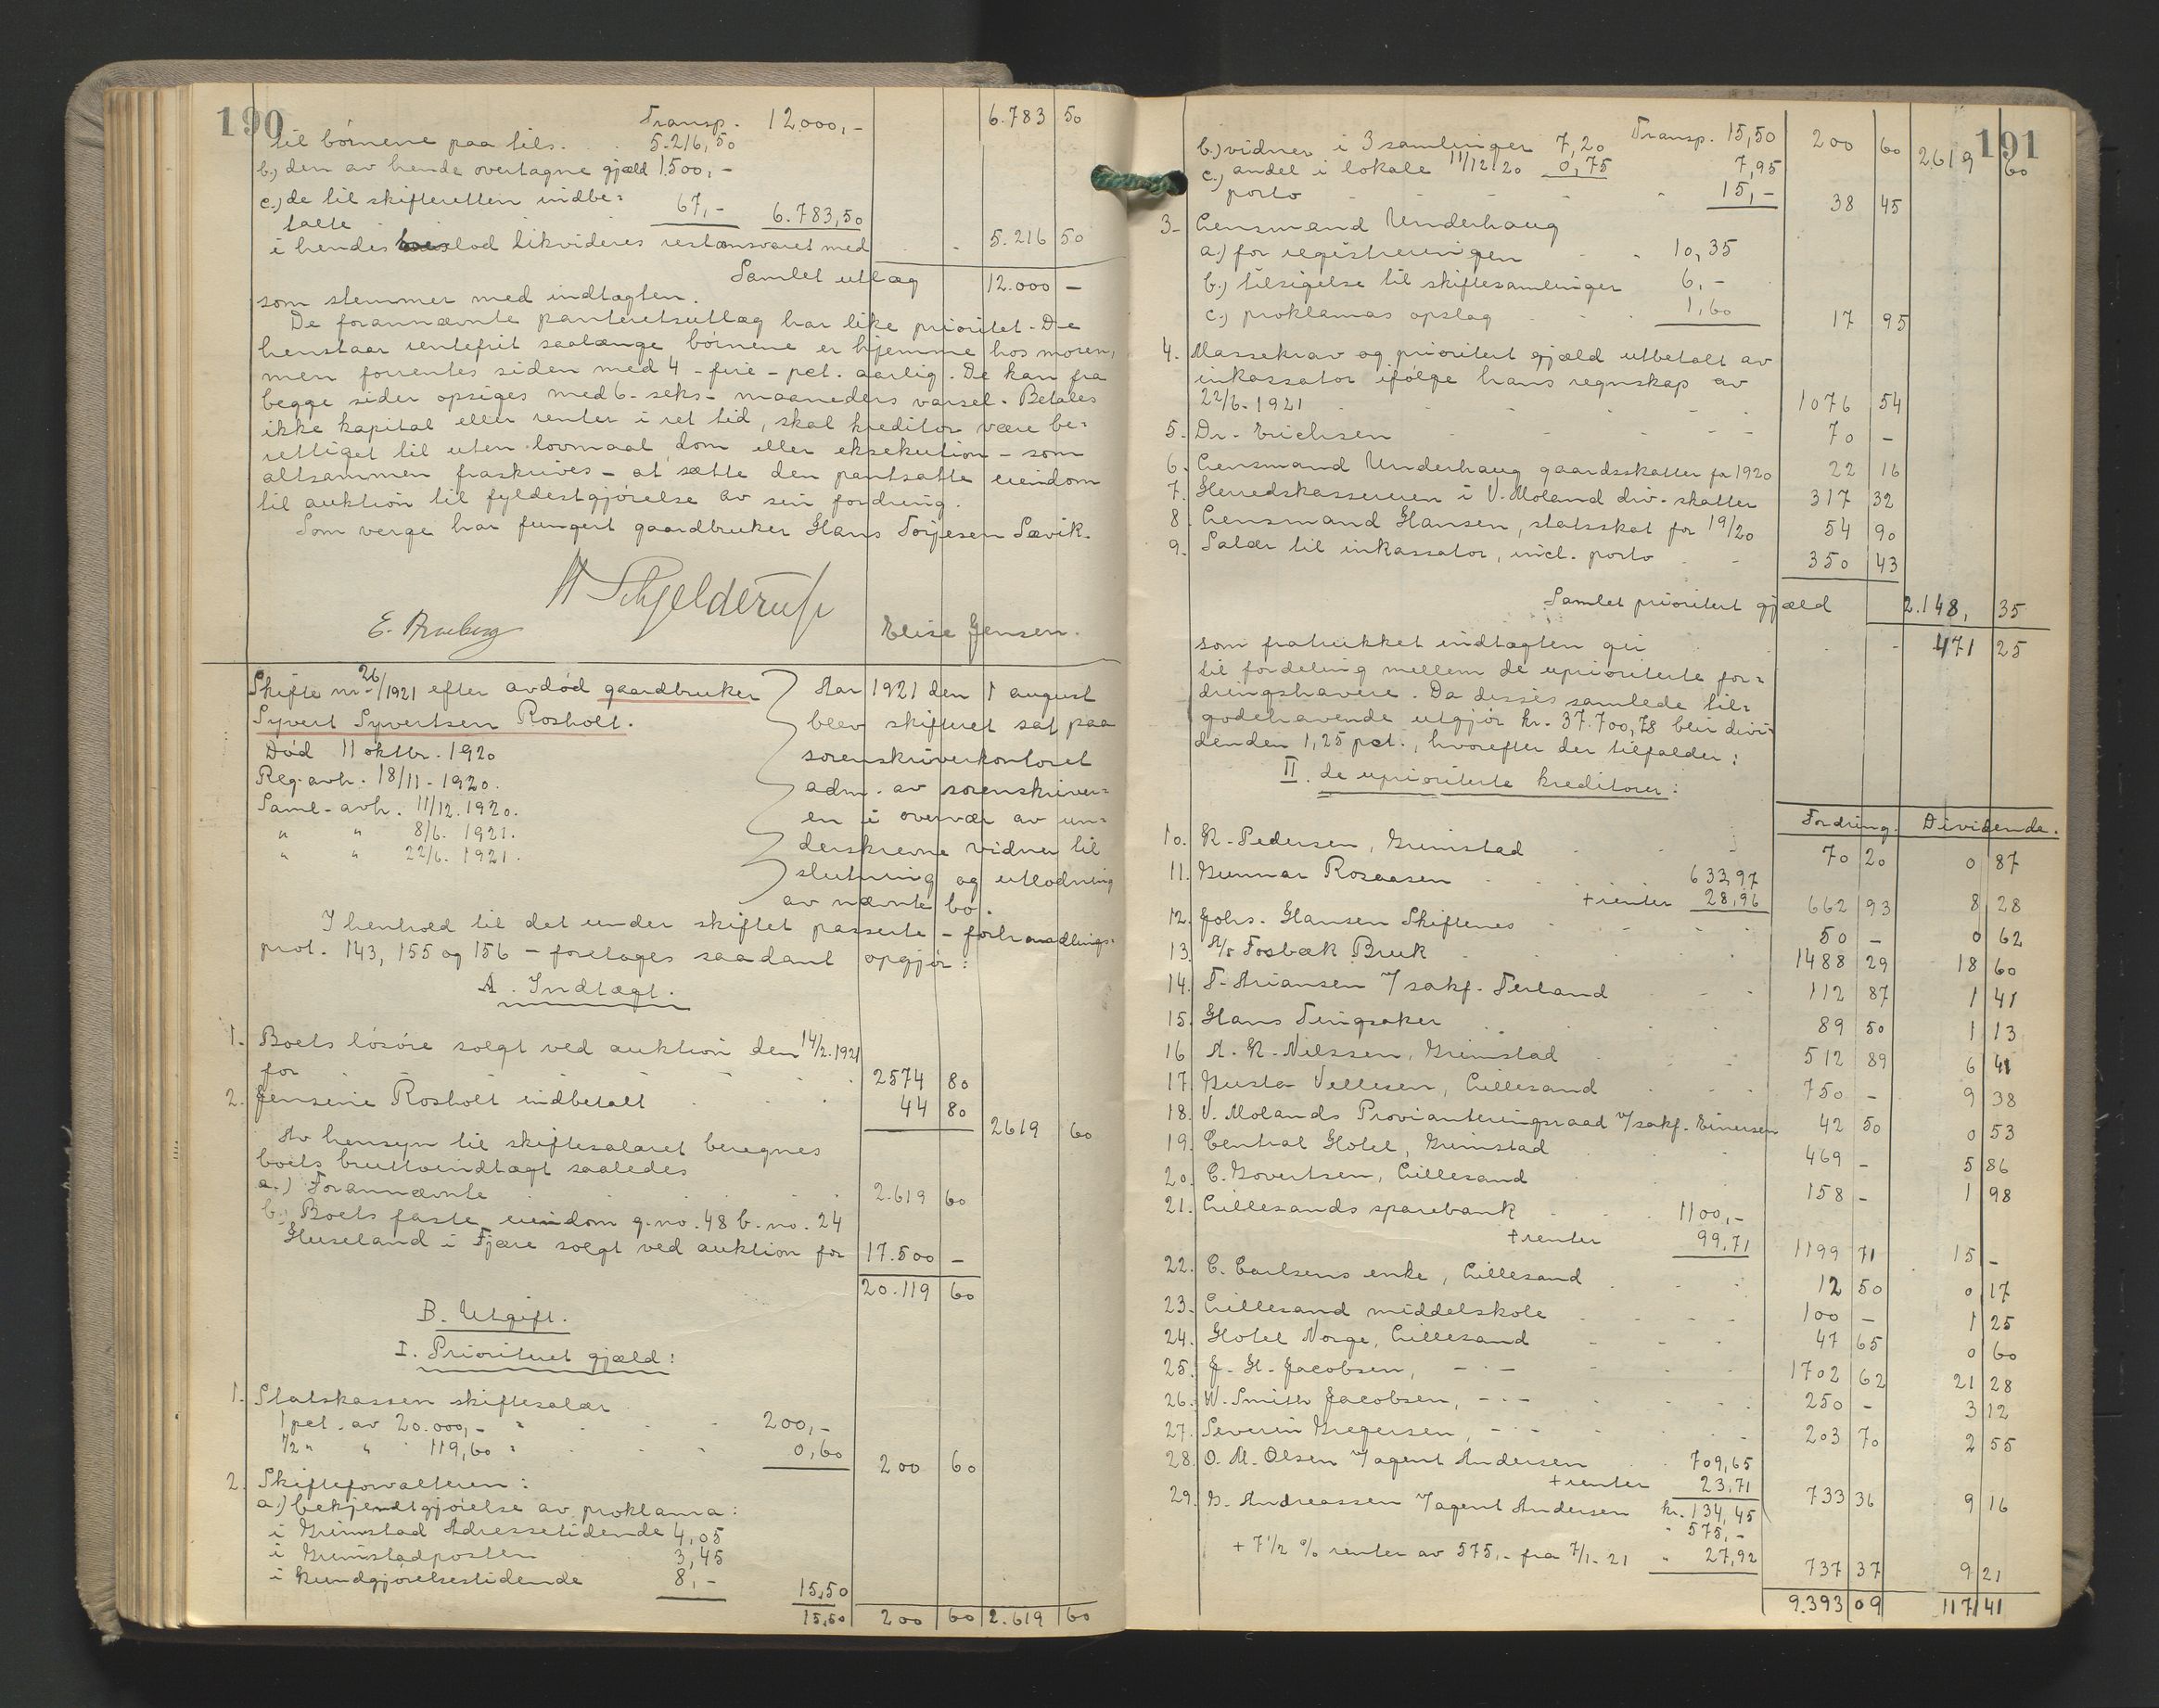 190
Transp. 12000,- 6.783 50
til børnene paa tils. . 5.216,50
b.) den av hende overtagne gjæld 1500,-
c.) de til skifteretten indbe-
talte 67,- 6.783,50
i hendes lod likvideres restansvaret med . - 5.216 50
Samlet utlæg 12.000 -
som stemmer med indtægten.
De forannævnte panteretsutlæg har like prioritet. De
henstaar rentefrit saalænge børnene er hjemme hos moren,
men forrentes siden med 4 - fire - pct. aarlig. De kan fra
begge sider opsiges med 6 - seks - maaneders varsel. Betales
ikke kapital eller renter i ret tid, skal kreditor være be-
rettiget til uten lovmaal, dom eller eksekution - som
altsammen fraskrives - at sætte den pantsatte eiendom
til auktion til fyldestgjørelse av sin fordring.
Som verge har fungert gaardbruker Hans Torjesen Sævik.
Schjelderup
E. Elise Jensen.
Skifte nr. 26/1921 efter avdød gaardbruker
Syvert Syvertsen Rosholt.
Død 11 oktbr. 1920
Reg. avh. 18/11 - 1920.
Saml. avh. 11/12. 1920.
" " 8/6. 1921.
" " 22/6. 1921.
Aar 1921 den 1 august
blev skifteret sat paa
sorenskriverkontoret
adm. av sorenskriver-
en i overvær av un-
derskrevne vidner til
slutning og utlodning
av nævnte bo.
I henhold til det under skiftet passerte - forhandlings-
prot. 143, 155 og 156 - foretages saadant opgjør:
A. Indtægt.
1. Boets løsøre solgt ved auktion den 14/2. 1921
for 2574 80
2. Jensine Rosholt indbetalt . . . 44 80
2619 60
Av hensyn til skiftesalæret beregnes
boets bruttoindtægt saaledes
a.) Forannævnte 2.619 60
b.) Boets faste eiendom g.no. 48 b.no. 24
Huseland i Fjære solgt ved auktion for 17.500 -
20.119 60
B. Utgift.
I. Prioritert gjæld:
1. Statskassen skiftesalær
1 pct. av 20.000,- " 200,-
1/2 " " 119,60 " 0,60 200 60
2. Skifteforvalteren:
a.) bekjendtgjørelse av proklama:
i Grimstad Adressetidende 4,05
i Grimstadposten 3,45
i Kundgjørelsestidende 8,- 15,50
15,50 200 60 2.619 60
191
Transp. 15,50 200 60 2619 60
b.) vidner i 3 samlinger 7,20
c.) andel i lokale 11/12 20 0,75 7,95
porto 15,- 38 45
3. Lensmand Underhaug
a.) for registreringen 10,35
b.) tilsigelse til skiftesamlinger 6,-
c.) proklamas opslag 1,60 17 95
4. Massekrav og prioritert gjæld utbetalt av
inkassator ifølge hans regnskap av
22/6. 1921 1076 54
5. Dr. Erichsen 70 -
6. Lensmand Underhaug gaardsskatter for 1920 22 16
7. Herredskassereren i V. Moland div. skatter 317 32
8. Lensmand Hansen, statsskat for 19/20 54 90
9. Salær til inkassator, incl. porto 350 43
Samlet prioritert gjæld 2.148, 35
som fratrukket indtægten gir 471 25
til fordeling mellem de uprioriterte for-
dringshavere. Da disses samlede til-
godehavende utgjør kr. 37.700,78 blir divi-
denden 1,25 pct., hvorefter der tilfalder:
II. de uprioriterte kreditorer:
Fordring. Dividende.
10. K. Pedersen, Grimstad 70 20 0 87
11. Gunnar Rosaasen 633,97
+ renter 28,96 662 93 8 28
12. Johs. Hansen Skiftenes 50 - 0 62
13. A/S Fosbæk Bruk 1488 29 18 60
14. T. Ariansen v/ sakf. Terland 112 87 1 41
15. Hans Tingsaker 89 50 1 13
16. A. K. Nilssen, Grimstad 512 89 6 41
17. Gusta Vellesen, Lillesand 750 - 9 38
18. V. Molands Provianteringsraad v/ sakf. Einersen 42 50 0 53
19. Central Hotel, Grimstad 469 - 5 86
20. C. Govertsen, Lillesand 158 - 1 98
21. Lillesands sparebank 1100,-
+ renter 99,71 1199 71 15 -
22. C. Carlsens enke, Lillesand 12 50 0,17
23. Lillesand middelskole 100 - 1 25
24. Hotel Norge, Lillesand 47 65 0 60
25. J. H. Jacobsen, - " - 1702 62 21 28
26. W. Smith Jacobsen, - " - 250 - 3 12
27. Severin Gregersen, - " - 203 70 2 55
28. O. M. Olsen v/ agent Andersen 709,65
+ renter 23,71 733 36 9 16
29. G. Andreassen v/ agent Andersen kr. 134,45
" 575,-
+ 7 1/2 % renter av 575,- fra 7/1. 21 " 27,92 737 37 9 21
9.393 09 117 41